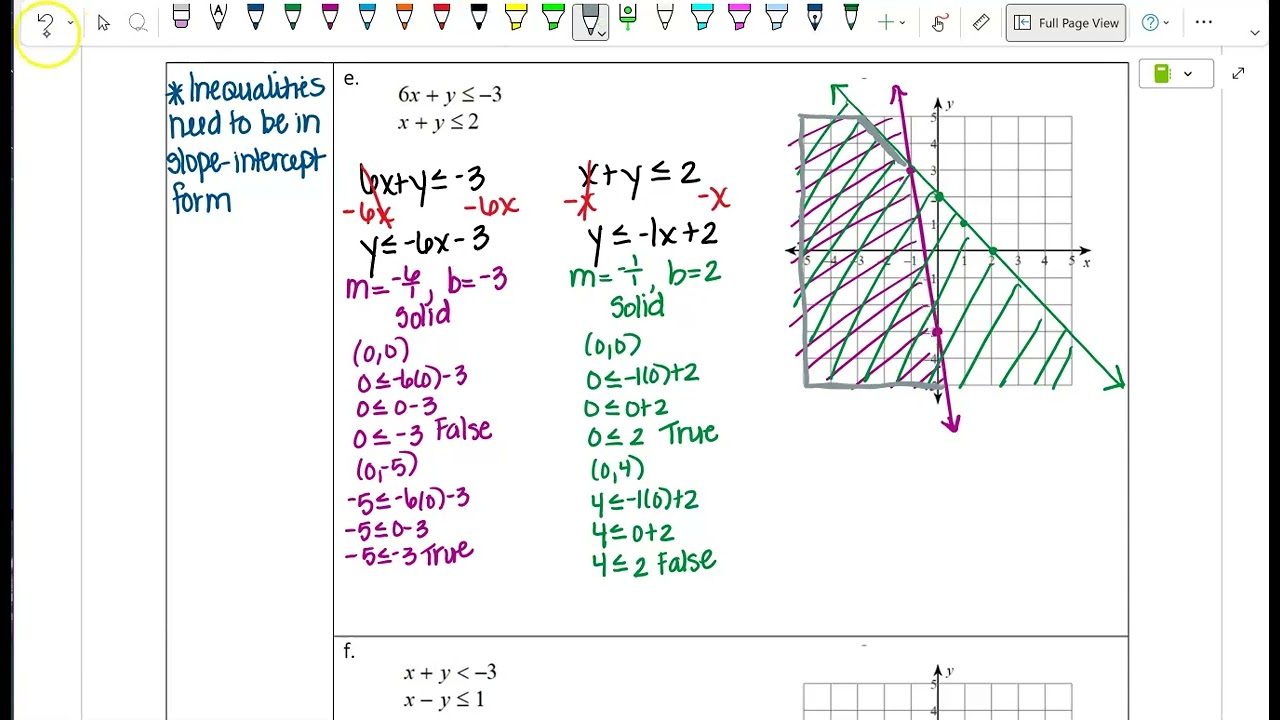 Full Page View
* Inequalities
need to be in
slope-intercept
form
e.
6x + y ≤ -3
x + y ≤ 2
6x+y ≤ -3
-6x -6x
y ≤ -6x - 3
m = -6/1, b = -3
Solid
(0,0)
0 ≤ -6(0) - 3
0 ≤ 0 - 3
0 ≤ -3 False
(0,-5)
-5 ≤ -6(0) - 3
-5 ≤ 0 - 3
-5 ≤ -3 True
x+y ≤ 2
-x -x
y ≤ -1x + 2
m = -1/1, b = 2
Solid
(0,0)
0 ≤ -1(0) + 2
0 ≤ 0 + 2
0 ≤ 2 True
(0,4)
4 ≤ -1(0) + 2
4 ≤ 0 + 2
4 ≤ 2 False
y
5
4
3
2
1
-5 -3 -2 -1 1 2 3 4 5 x
f.
x + y < -3
x - y ≤ 1
y
5
4